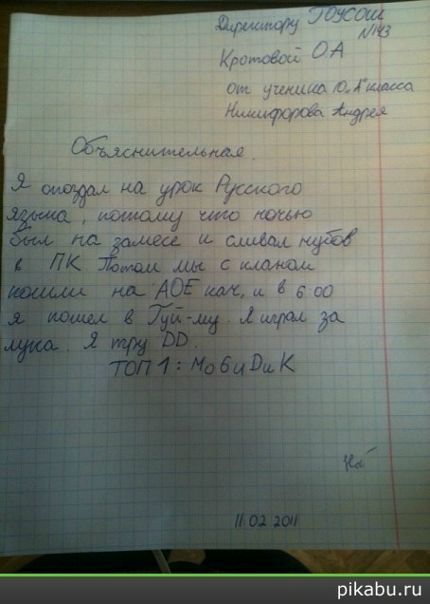 Директору ГОУСОШ
№143
Кротовой О.А
от ученика 10 "А" класса
Никифорова Андрея
Объяснительная.
Я опоздал на урок Русского
языка, потому что ночью
был на замесе и сливал нубов
в ПК Потом мы с кланом
пошли на АОЕ кач, и в 6 00
я пошел в Гуй-му. Я играл за
лука. Я тру DD.
ТОП 1: МоБиDиК
11.02 2011
pikabu.ru